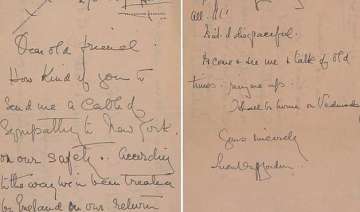 Dear old friend.
How kind of you to
send me a Cable of
Sympathy to New York.
on our safety.. According
to the way we've been treated
by England on our return
all
is disgraceful.
Come & see me & talk of old
times. ring me up.
I shall be home on Wednesday
Yours sincerely